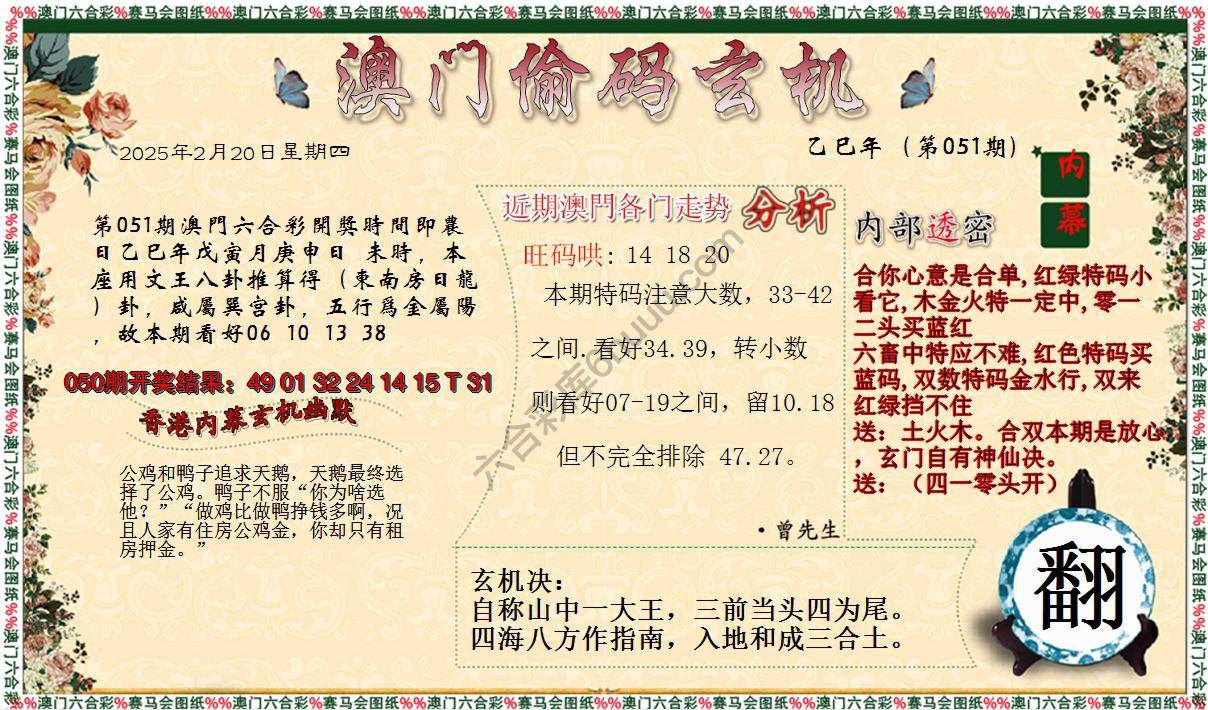 %%澳门六合彩%赛马会图纸%%澳门六合彩%赛马会图纸%%澳门六合彩%赛马会图纸%%澳门六合彩%赛马会图纸%%澳门六合彩%赛马会图纸%%澳门六合彩%赛马会图纸%%
澳门偷码玄机
2025年2月20日星期四
乙巳年（第051期）
内幕
第051期澳門六合彩開獎時間即農
日乙巳年戊寅月庚申日 未時，本
座用文王八卦推算得（東南房日龍
）卦，咸屬巽宫卦，五行爲金屬陽
，故本期看好06 10 13 38
050期开奖结果：49 01 32 24 14 15 T 31
香港内幕玄机幽默
公鸡和鸭子追求天鹅，天鹅最终选
择了公鸡。鸭子不服“你为啥选
他？”“做鸡比做鸭挣钱多啊，况
且人家有住房公鸡金，你却只有租
房押金。”
近期澳門各门走势 分析
旺码哄: 14 18 20
本期特码注意大数，33-42
之间.看好34.39，转小数
则看好07-19之间，留10.18
但不完全排除 47.27。
·曾先生
内部透密
合你心意是合单,红绿特码小
看它,木金火特一定中,零一
二头买蓝红
六畜中特应不难,红色特码买
蓝码,双数特码金水行,双来
红绿挡不住
送：土火木。合双本期是放心
，玄门自有神仙决。
送：（四一零头开）
玄机决：
自称山中一大王，三前当头四为尾。
四海八方作指南，入地和成三合土。
翻
%%澳门六合彩%赛马会图纸%%澳门六合彩%赛马会图纸%%澳门六合彩%赛马会图纸%%澳门六合彩%赛马会图纸%%澳门六合彩%赛马会图纸%%澳门六合彩%赛马会图纸%%